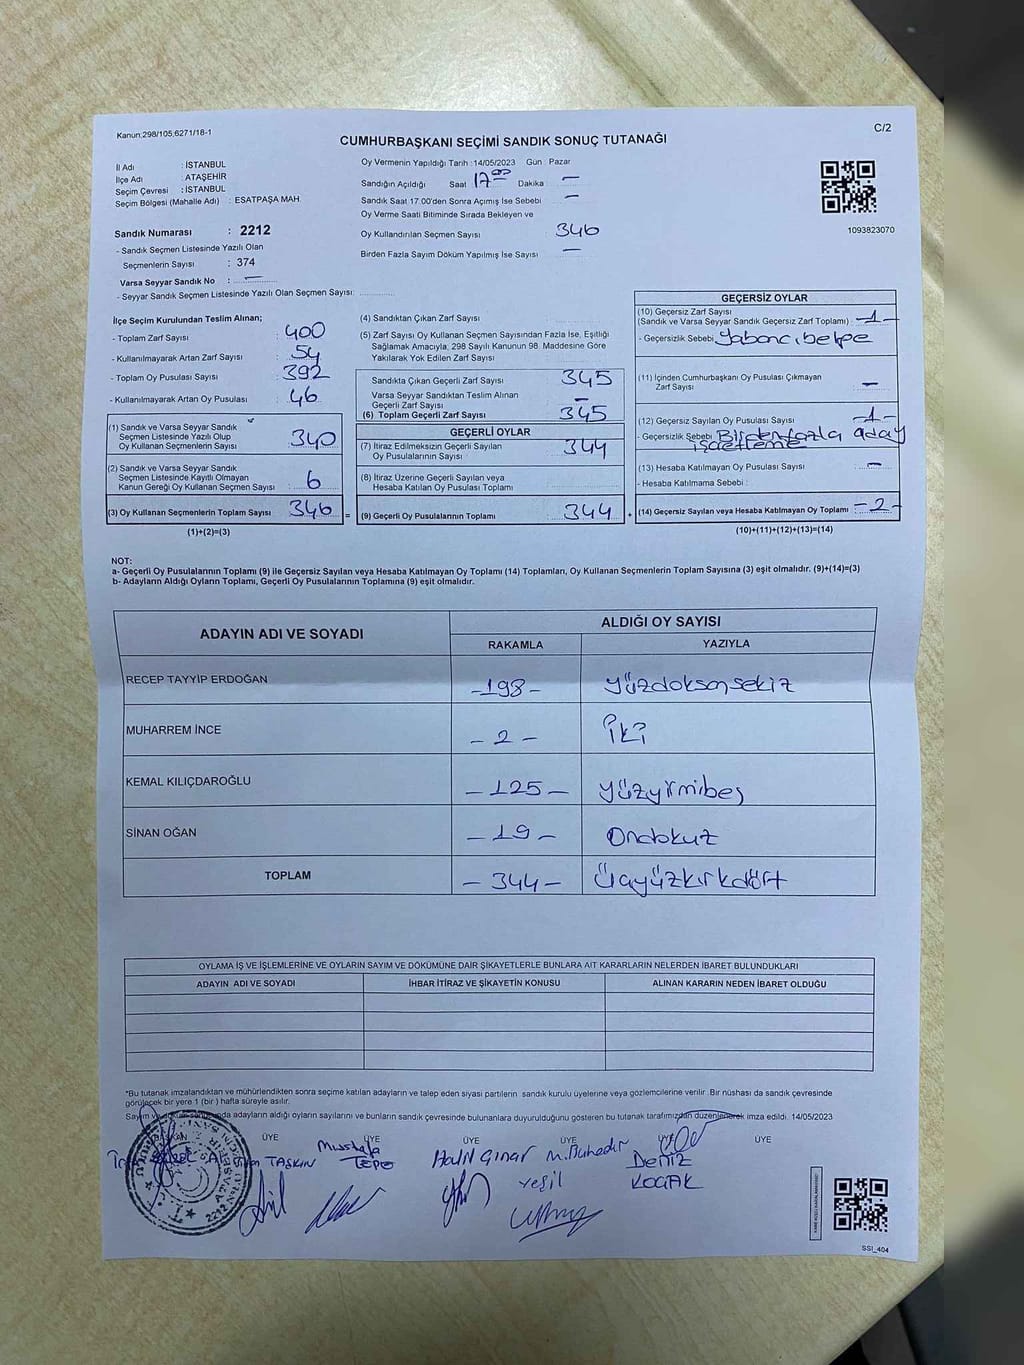 Kanun:298/105;6271/18-1
C/2
CUMHURBAŞKANI SEÇİMİ SANDIK SONUÇ TUTANAĞI
İl Adı : İSTANBUL
İlçe Adı : ATAŞEHİR
Seçim Çevresi : İSTANBUL
Seçim Bölgesi (Mahalle Adı) : ESATPAŞA MAH.
Sandık Numarası : 2212
- Sandık Seçmen Listesinde Yazılı Olan
Seçmenlerin Sayısı : 374
Varsa Seyyar Sandık No : —
- Seyyar Sandık Seçmen Listesinde Yazılı Olan Seçmen Sayısı:
Oy Vermenin Yapıldığı Tarih :14/05/2023 Gün : Pazar
Sandığın Açıldığı Saat 17:00 Dakika : —
Sandık Saat 17.00'den Sonra Açımış İse Sebebi : —
Oy Verme Saati Bitiminde Sırada Bekleyen ve
Oy Kullandırılan Seçmen Sayısı : 346
Birden Fazla Sayım Döküm Yapılmış İse Sayısı : —
1093823070
İlçe Seçim Kurulundan Teslim Alınan;
- Toplam Zarf Sayısı : 400
- Kullanılmayarak Artan Zarf Sayısı : 54
- Toplam Oy Pusulası Sayısı : 392
- Kullanılmayarak Artan Oy Pusulası : 46
(1) Sandık ve Varsa Seyyar Sandık
Seçmen Listesinde Yazılı Olup
Oy Kullanan Seçmenlerin Sayısı : 340
(2) Sandık ve Varsa Seyyar Sandık
Seçmen Listesinde Kayıtlı Olmayan
Kanun Gereği Oy Kullanan Seçmen Sayısı : 6
(3) Oy Kullanan Seçmenlerin Toplam Sayısı 346 =
(1)+(2)=(3)
(4) Sandıktan Çıkan Zarf Sayısı :
(5) Zarf Sayısı Oy Kullanan Seçmen Sayısından Fazla İse, Eşitliği
Sağlamak Amacıyla, 298 Sayılı Kanunun 98. Maddesine Göre
Yakılarak Yok Edilen Zarf Sayısı :
Sandıkta Çıkan Geçerli Zarf Sayısı : 345
Varsa Seyyar Sandıktan Teslim Alınan
Geçerli Zarf Sayısı : —
(6) Toplam Geçerli Zarf Sayısı : 345
GEÇERLİ OYLAR
(7) İtiraz Edilmeksizin Geçerli Sayılan
Oy Pusulalarının Sayısı : 344
(8) İtiraz Üzerine Geçerli Sayılan veya
Hesaba Katılan Oy Pusulası Toplamı :
(9) Geçerli Oy Pusulalarının Toplamı : 344 +
GEÇERSİZ OYLAR
(10) Geçersiz Zarf Sayısı
(Sandık ve Varsa Seyyar Sandık Geçersiz Zarf Toplamı) : -1-
- Geçersizlik Sebebi : Yabancı belge
(11) İçinden Cumhurbaşkanı Oy Pusulası Çıkmayan
Zarf Sayısı : —
(12) Geçersiz Sayılan Oy Pusulası Sayısı : -1-
- Geçersizlik Sebebi : Birden fazla aday
işaretleme
(13) Hesaba Katılmayan Oy Pusulası Sayısı : —
- Hesaba Katılmama Sebebi :
(14) Geçersiz Sayılan veya Hesaba Katılmayan Oy Toplamı -2-
(10)+(11)+(12)+(13)=(14)
NOT:
a- Geçerli Oy Pusulalarının Toplamı (9) ile Geçersiz Sayılan veya Hesaba Katılmayan Oy Toplamı (14) Toplamları, Oy Kullanan Seçmenlerin Toplam Sayısına (3) eşit olmalıdır. (9)+(14)=(3)
b- Adayların Aldığı Oyların Toplamı, Geçerli Oy Pusulalarının Toplamına (9) eşit olmalıdır.
ADAYIN ADI VE SOYADI
ALDIĞI OY SAYISI
RAKAMLA YAZIYLA
RECEP TAYYİP ERDOĞAN -198- Yüzdoksansekiz
MUHARREM İNCE -2- İki
KEMAL KILIÇDAROĞLU -125- Yüzyirmibeş
SİNAN OĞAN -19- Ondokuz
TOPLAM -344- Üçyüzkırkdört
OYLAMA İŞ VE İŞLEMLERİNE VE OYLARIN SAYIM VE DÖKÜMÜNE DAİR ŞİKAYETLERLE BUNLARA AİT KARARLARIN NELERDEN İBARET BULUNDUKLARI
ADAYIN ADI VE SOYADI İHBAR İTİRAZ VE ŞİKAYETİN KONUSU ALINAN KARARIN NEDEN İBARET OLDUĞU
*Bu tutanak imzalandıktan ve mühürlendikten sonra seçime katılan adayların ve talep eden siyasi partilerin sandık kurulu üyelerine veya gözlemcilerine verilir. Bir nüshası da sandık çevresinde
görülecek bir yere 1 (bir) hafta süreyle asılır.
Sayım ve döküm sonucunda adayların aldığı oyların sayılarını ve bunların sandık çevresinde bulunanlara duyurulduğunu gösteren bu tutanak tarafımızdan düzenlenerek imza edildi. 14/05/2023
BAŞKAN ÜYE ÜYE ÜYE ÜYE ÜYE ÜYE
TAŞKIN
Mustafa
TEPE
Halil Çınar
M.Muhedir
Yeşil
Deniz
KOÇAK
SSI_404